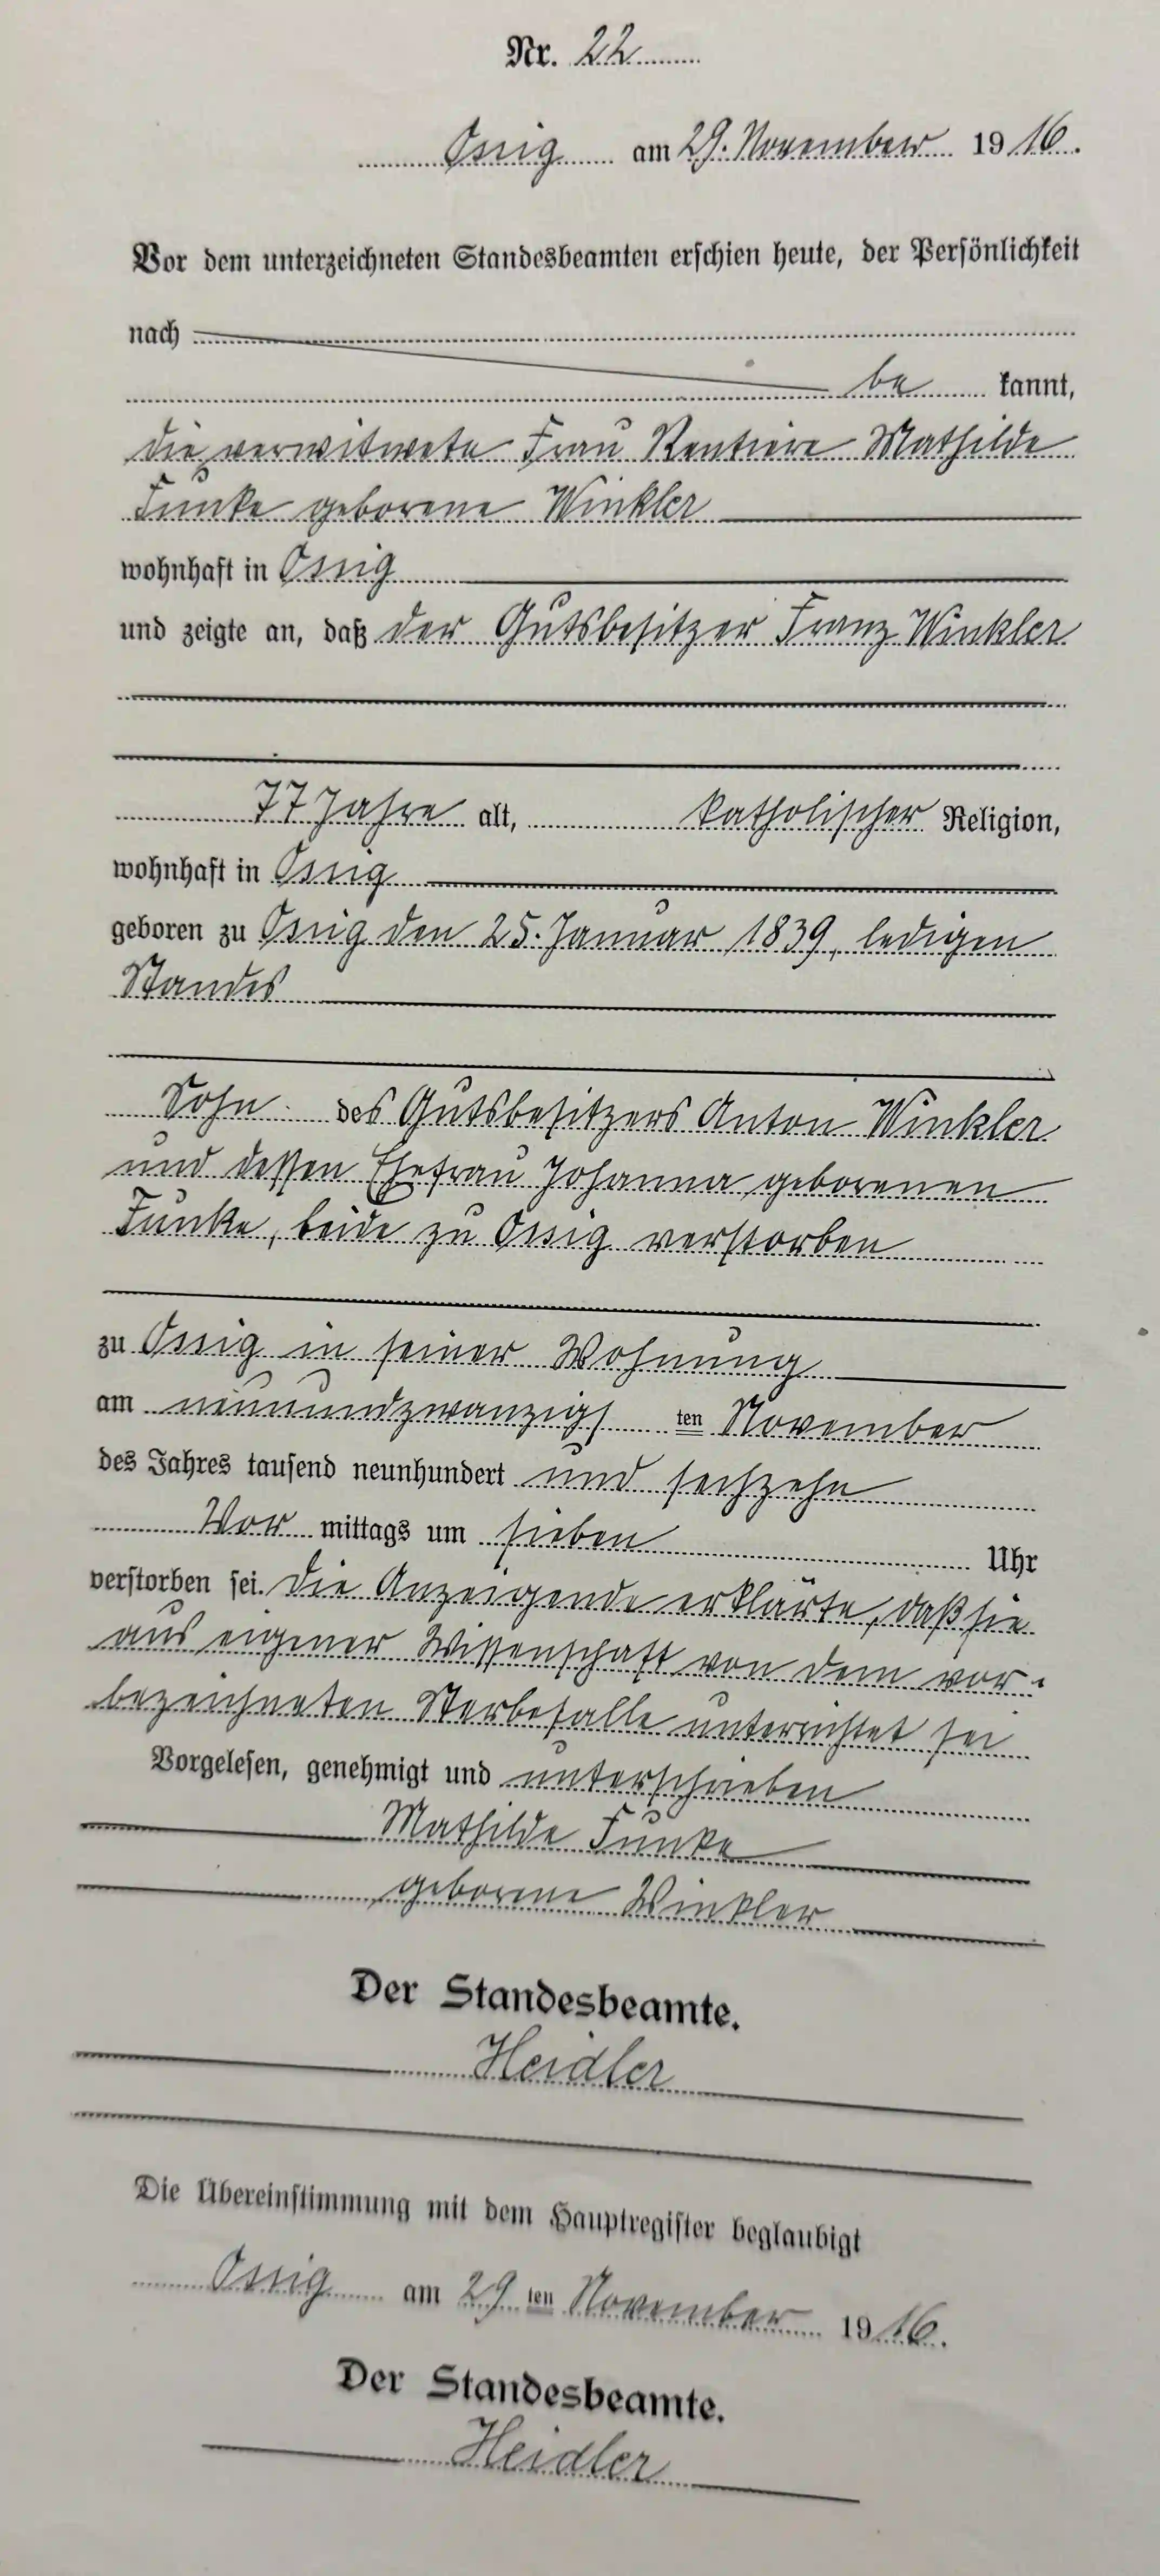 Nr. 22
Ossig am 29. November 1916.
Vor dem unterzeichneten Standesbeamten erschien heute, der Persönlichkeit
nach
be kannt,
die verwitwete Frau Rentiere Mathilde
Funke geborene Winkler
wohnhaft in Ossig
und zeigte an, daß der Gutsbesitzer Franz Winkler
77 Jahre alt, katholischer Religion,
wohnhaft in Ossig
geboren zu Ossig den 25. Januar 1839, ledigen
Standes
Sohn des Gutsbesitzers Anton Winkler
und dessen Ehefrau Johanna geborenen
Funke, beide zu Ossig verstorben
zu Ossig in seiner Wohnung
am neunundzwanzigs ten November
des Jahres tausend neunhundert und sechzehn
Vor mittags um sieben Uhr
verstorben sei. Die Anzeigende erklärte, daß sie
aus eigener Wissenschaft von dem vor-
bezeichneten Sterbefalle unterrichtet sei
Vorgelesen, genehmigt und unterschrieben
Mathilde Funke
geborene Winkler
Der Standesbeamte.
Heidler
Die Übereinstimmung mit dem Hauptregister beglaubigt
Ossig am 29 ten November 1916.
Der Standesbeamte.
Heidler